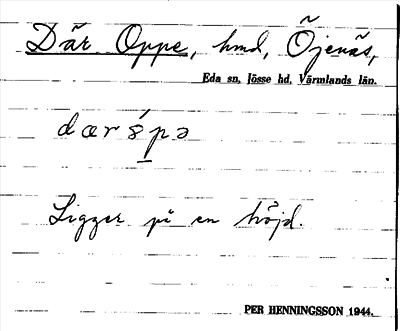 Där Oppe, hmd, Öjenäs,
Eda sn, Jösse hd, Värmlands län.
Ligger på en höjd.
PER HENNINGSSON 1944.